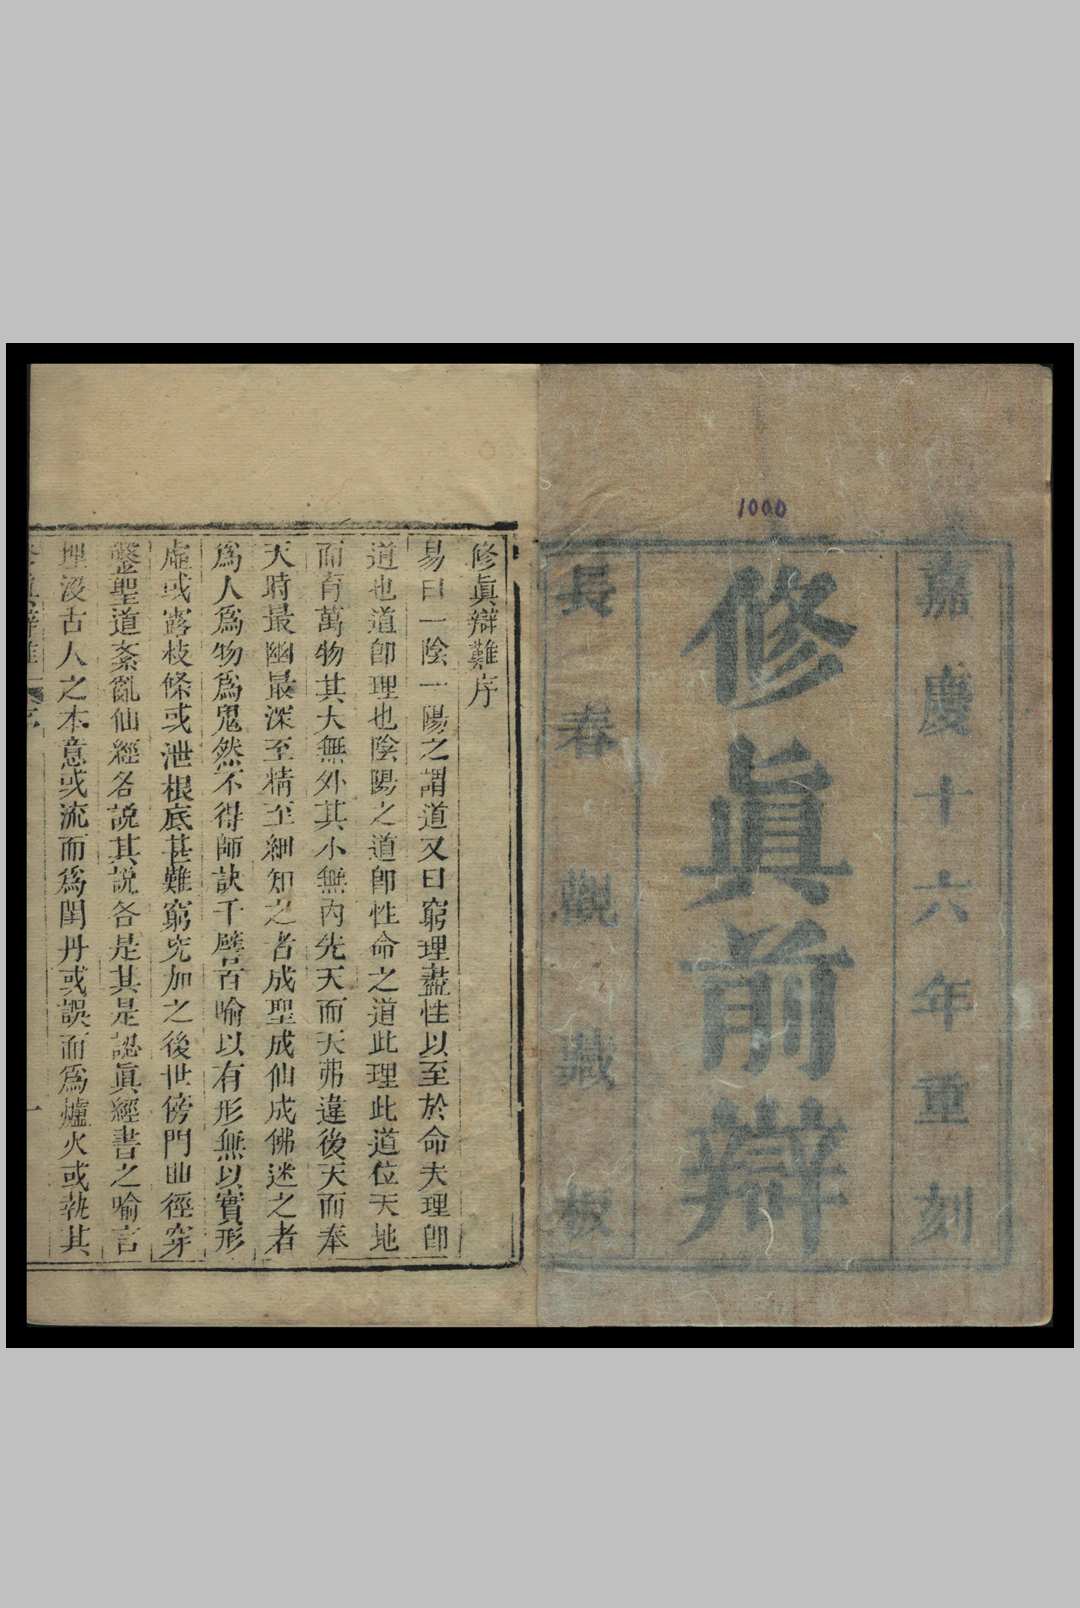 1000
嘉慶十六年重刻
修眞前辯
長春觀藏板
修眞辯難序
易曰一陰一陽之謂道又曰窮理盡性以至於命夫理卽
道也道卽理也陰陽之道卽性命之道此理此道位天地
而育萬物其大無外其小無內先天而天弗違後天而奉
天時最幽最深至精至細知之者成聖成仙成佛迷之者
爲人爲物爲鬼然不得師訣千譬百喻以有形無以實形
虛或露枝條或泄根底甚難窮究加之後世傍門曲徑穿
鑿聖道紊亂仙經各說其說各是其是認眞經書之喻言
埋沒古人之本意或流而爲閨丹或誤而爲爐火或執其
修眞辯難 序 一